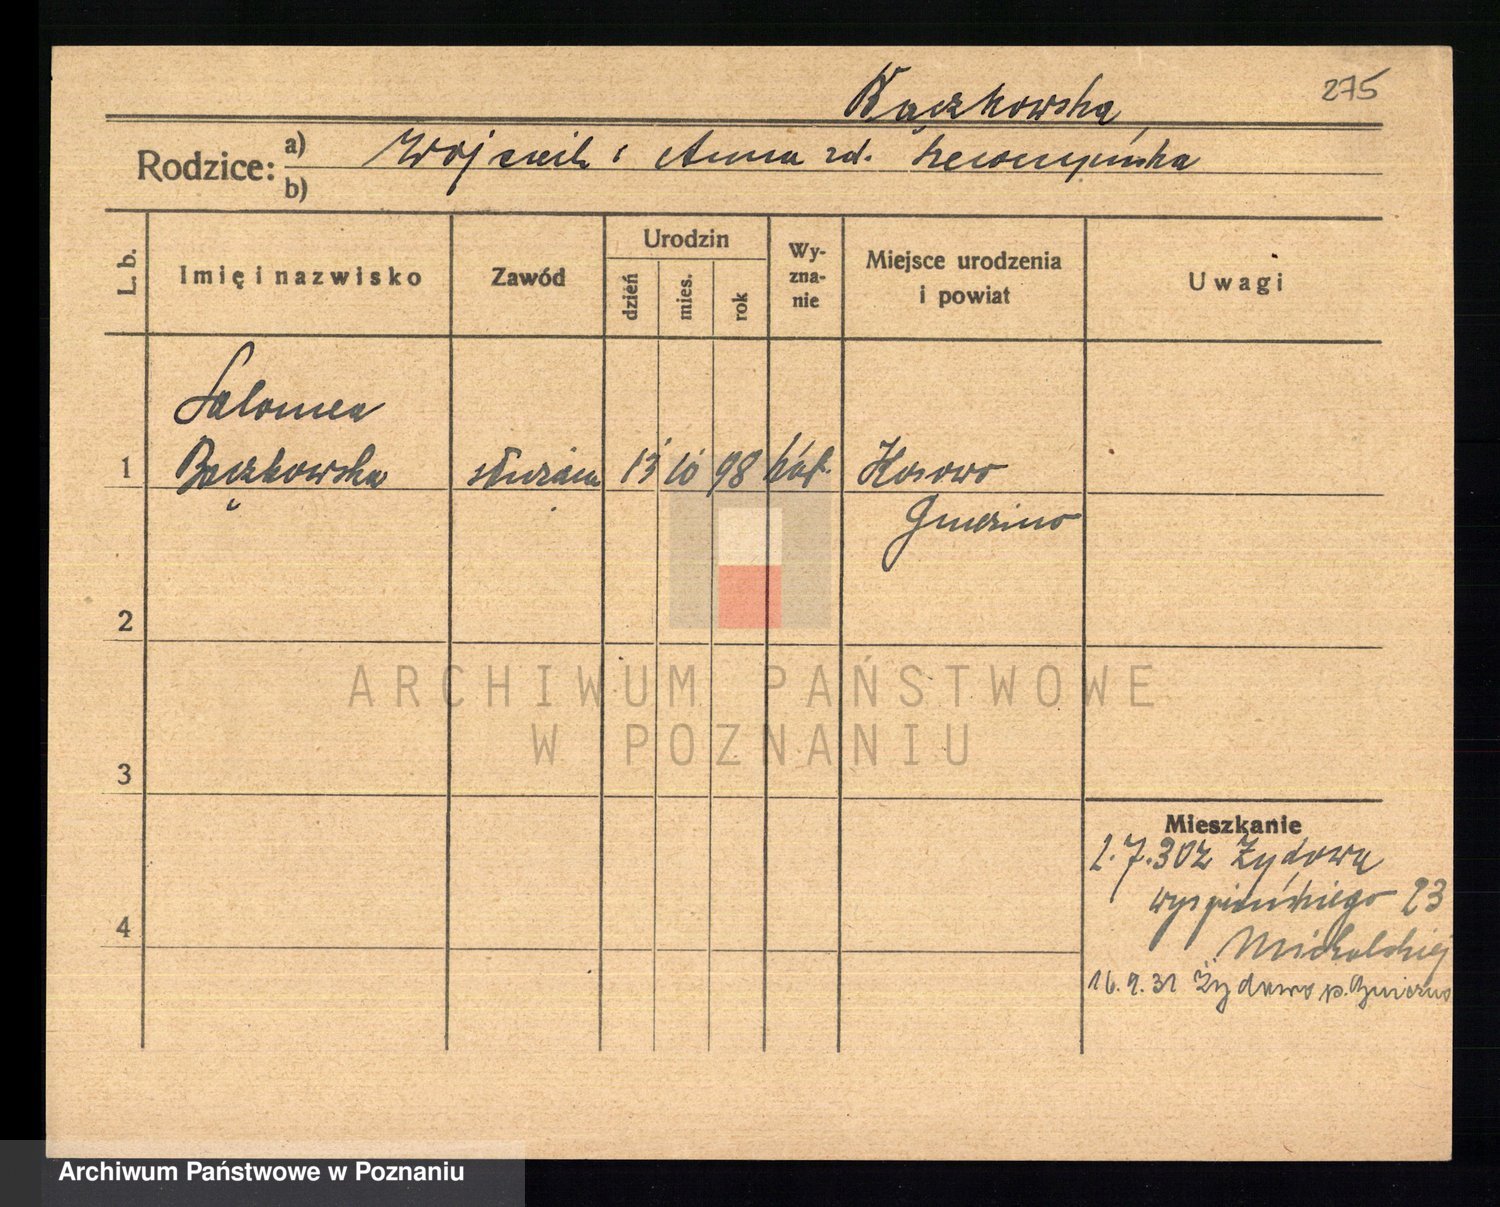 275
Bączkowska
Rodzice: a) Wojciech i Anna zd.
b)
L. b.
Imię i nazwisko
Zawód
Urodzin
dzień
mies.
rok
Wy-
zna-
nie
Miejsce urodzenia
i powiat
Uwagi
Salomea
1 Bączkowska służąca 13 10 98 kat. Kosowo
Gniezno
2
3
4
Mieszkanie
2.7.30 z Żydowa
Wyspiańskiego 23
16.9.31 Żydowo p. Gniezno
ARCHIWUM PAŃSTWOWE
W POZNANIU
Archiwum Państwowe w Poznaniu